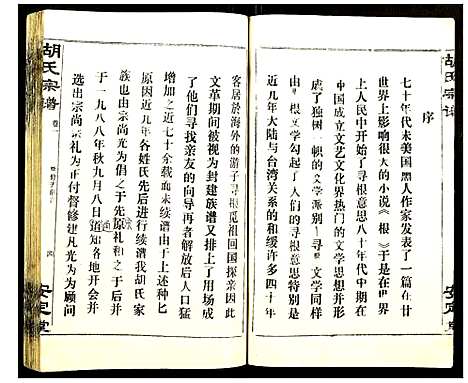 胡氏宗谱
序
七十年代末美国黑人作家发表了一篇在廿
世界上影响很大的小说《根》于是在世界
上人民中开始了寻根意思八十年代中期在
中国成立文艺文化界热门的文学思想并形
成了独树一帜的文学派别寻文学同样
由根文学勾起了人们的寻根意思特别是
近几年大陆与台湾关系的和缓许多四十年
安定堂
客居於海外的游子寻根觅祖回国探亲因此
文革期间被视为封建族谱又排上了用场成
了他们寻找亲友的向导再者解放后人口猛
增加之近七十余载面未续谱由于上述种匕
原因近几年各姓氏先后进行续谱我胡氏家
族也由宗尚光为倡之于先宗礼和之于后并
于一九八八年秋九月八日通知各地开会并
选出宗尚宗礼为正付督修建凡光为为顾问
胡氏宗谱
卷一
四
安定堂